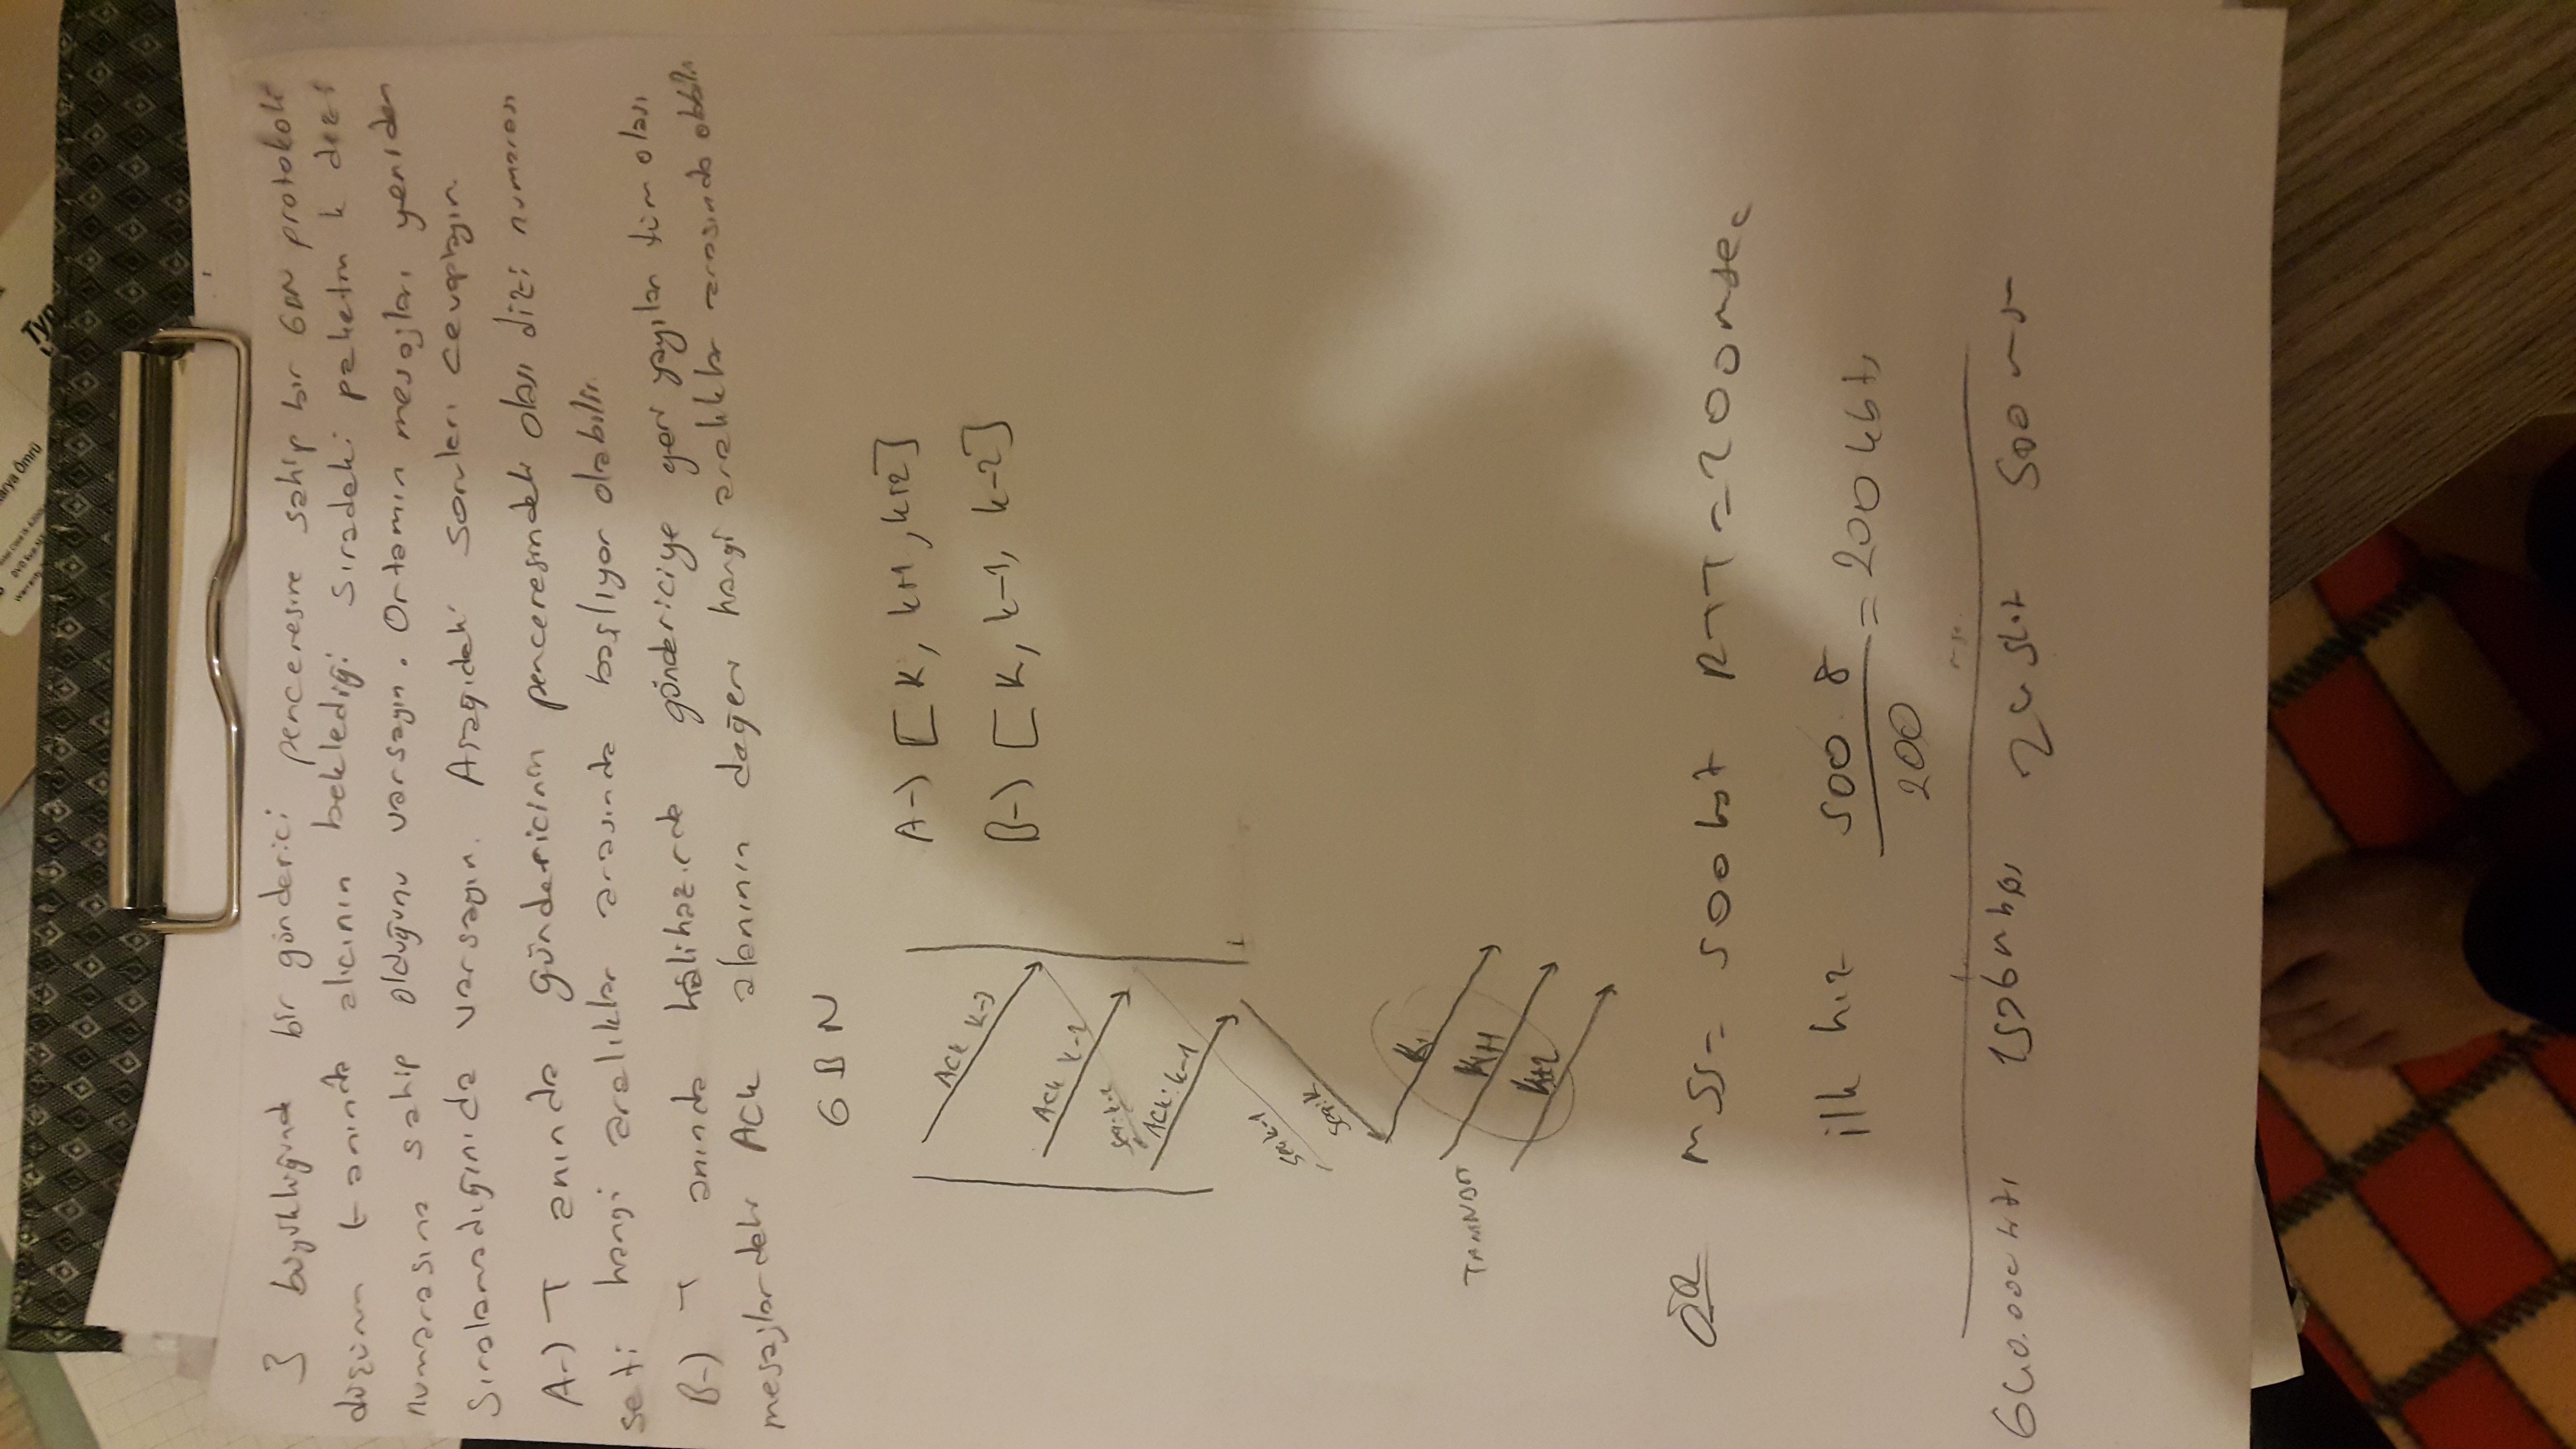 arya Ömrü
Typ
3 büyüklüğünde bir gönderici penceresine sahip bir GBN protokolü
düşünün t anında alıcının beklediği sıradaki paketin k dizi
numarasına sahip olduğunu varsayın. Ortamın mesajları yeniden
sıralamadığınıda varsayın. Aşağıdaki soruları cevaplayın.
A-) T anında göndericinin penceresindeki olası dizi numarası
seti hangi aralıklar arasında başlıyor olabilir.
B-) T anında hâlihazırda göndericiye geri yayılan tüm olası
mesajlardaki Ack alanının değeri hangi aralıklar arasında olabilir
GBN
A-) [K, k+1, k+2]
B-) [K, k-1, k-2]
Ack k-3
Ack k-2
Ack: k-1
Seq k-1
Seq: k
K
K+1
K+2
T ANINDA
ÖR MSS= 500 byt RTT = 200 msec
ilk hız 500.8 / 200 = 200 kbts
640.000 1536 mbps 24 slot 500 msn